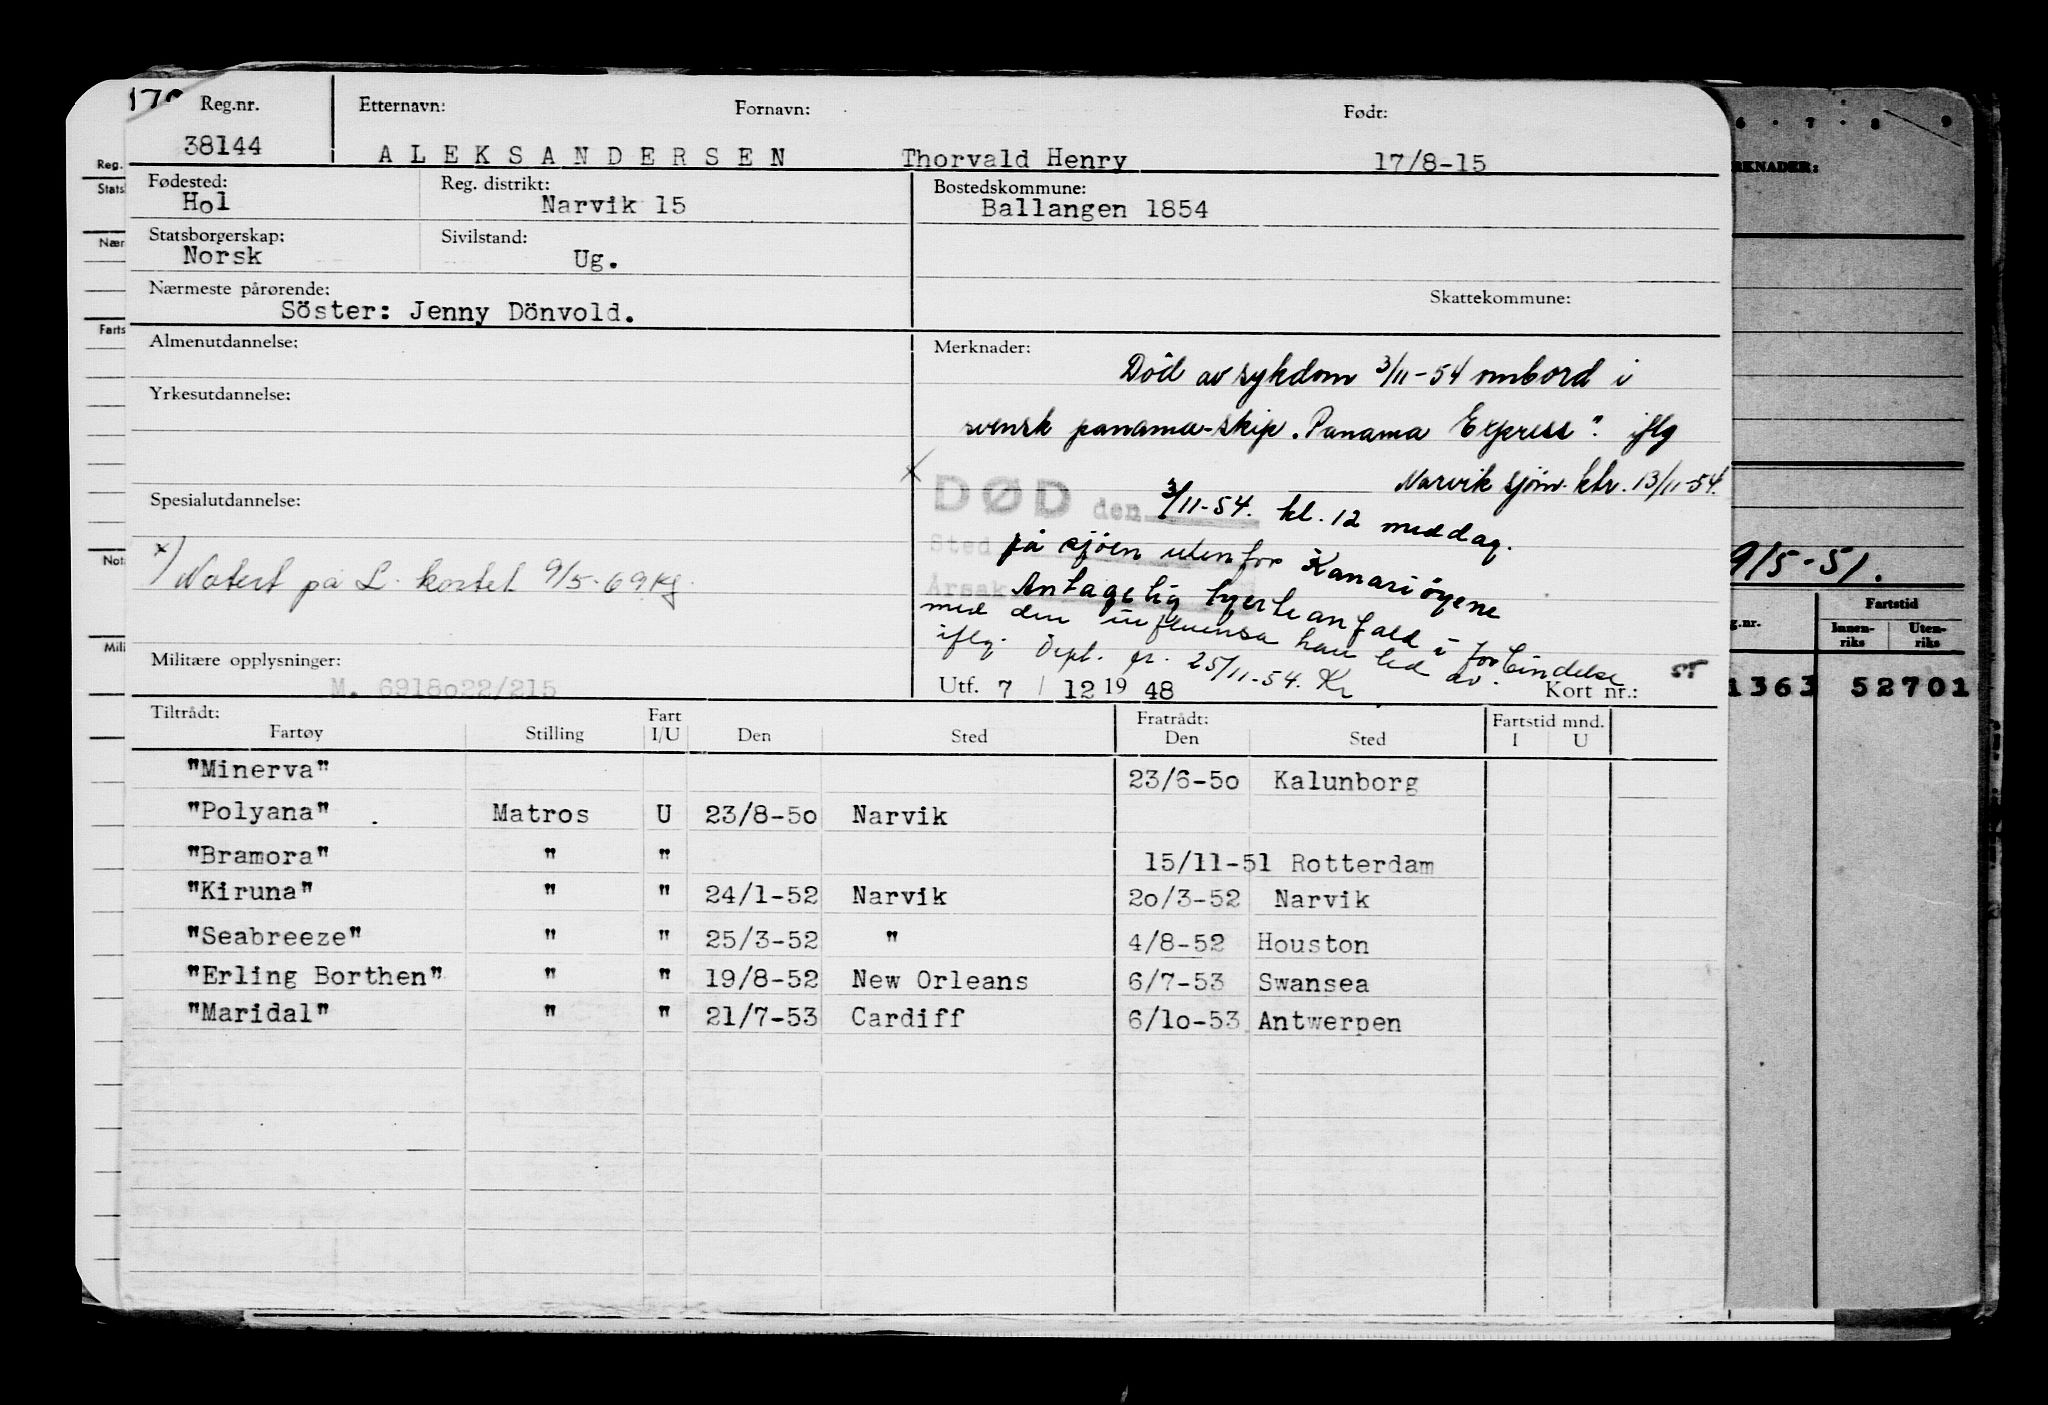 170 Reg.nr. Etternavn: Fornavn: Født:
38144 ALEKSANDERSEN Thorvald Henry 17/8-15
Fødested: Reg. distrikt: Bostedskommune:
Hol Narvik 15 Ballangen 1854
Statsborgerskap: Sivilstand:
Norsk Ug.
Nærmeste pårørende: Skattekommune:
Söster: Jenny Dönvold.
Almenutdannelse:
Yrkesutdannelse:
Spesialutdannelse:
x) Notert på L. kortet 9/5-69 Kg.
Militære opplysninger:
M. 6918022/215
Merknader:
Död av sykdom 3/11-54 ombord i
svensk panama-skip „Panama Express". iflg
Narvik sjøm. ktr. 13/11-54.
x DØD den 3/11-54. kl. 12 middag.
Sted på sjøen utenfor Kanariøyene
Årsak Antagelig hjerteanfald i forbindelse
med den influensa han led av.
iflg. Dept. gr. 25/11-54. Kr
Utf. 7 / 12 19 48 Kort nr.:
Tiltrådt: Fart Fratrådt: Fartstid mnd.
Fartøy Stilling I/U Den Sted Den Sted I U
"Minerva" 23/6-50 Kalunborg
"Polyana" . Matros U 23/8-50 Narvik
"Bramora" " " 15/11-51 Rotterdam
"Kiruna" " " 24/1-52 Narvik 20/3-52 Narvik
"Seabreeze" " " 25/3-52 " 4/8-52 Houston
"Erling Borthen" " " 19/8-52 New Orleans 6/7-53 Swansea
"Maridal" " " 21/7-53 Cardiff 6/10-53 Antwerpen
Reg.
Stats
Nær
Farts
Not
Mili
6 . 7 . 8 9
RKNADER:
9/5-51.
Fartstid
g.nr. Innen-riks Uten-riks
1363 52701